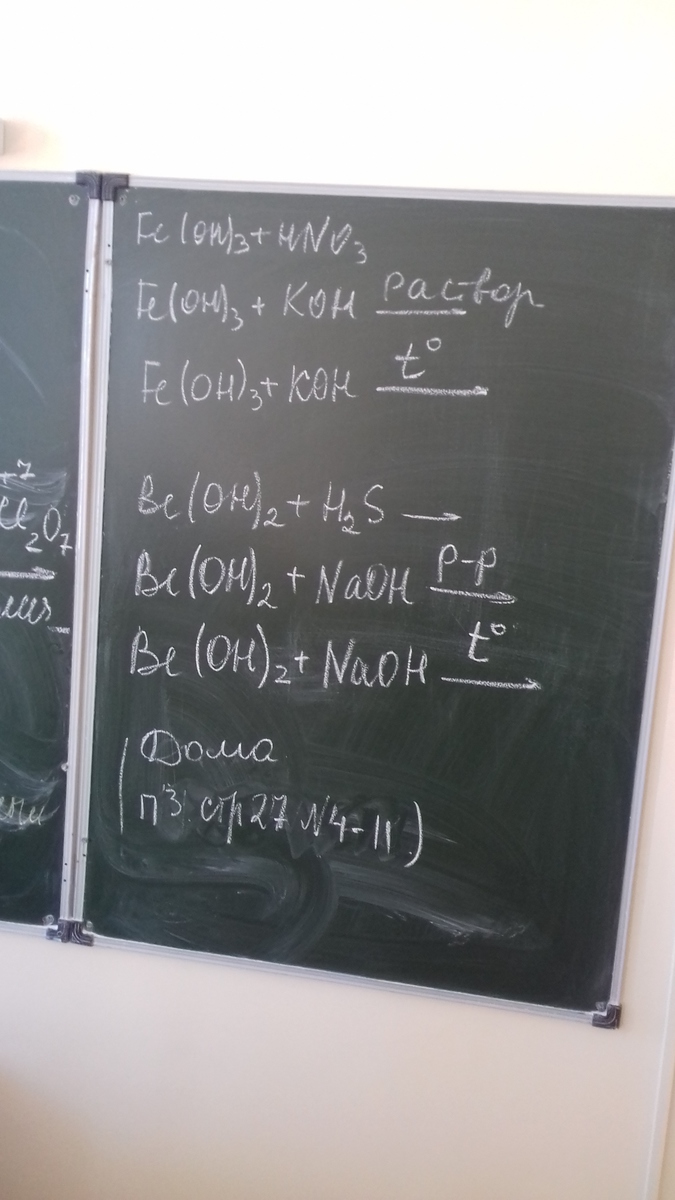 +7
Cl₂O₇
Fe(OH)₃+HNO₃
Fe(OH)₃ + KOH раствор
Fe(OH)₃+KOH t°
Be(OH)₂ + H₂S →
Be(OH)₂ + NaOH р-р
Be(OH)₂+ NaOH t°
Дома
п3 стр27 №4-11)